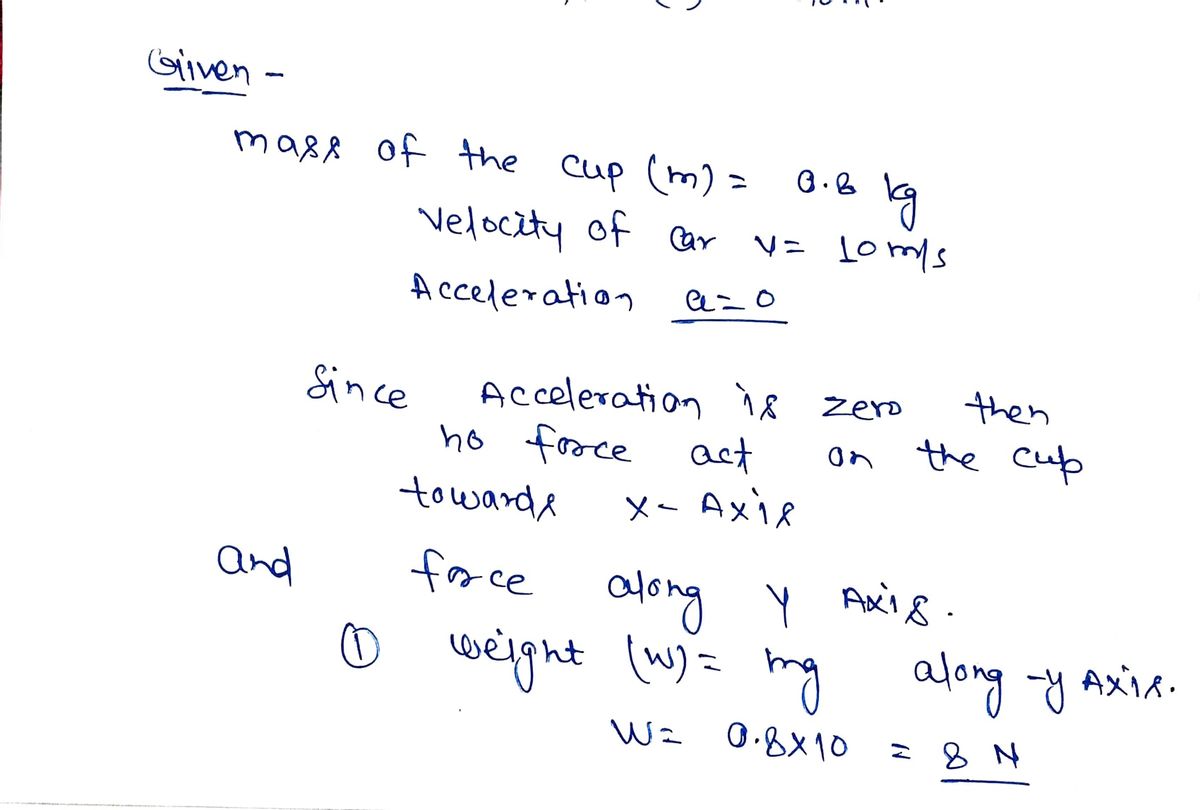 Given -
mass of the cup (m) = 0.8 kg
Velocity of car v = 10 m/s
Acceleration a = 0
Since Acceleration is zero then
no force act on the cup
towards x - Axis
and force along Y Axis.
① weight (w) = mg along -y Axis.
W = 0.8 x 10 = 8 N